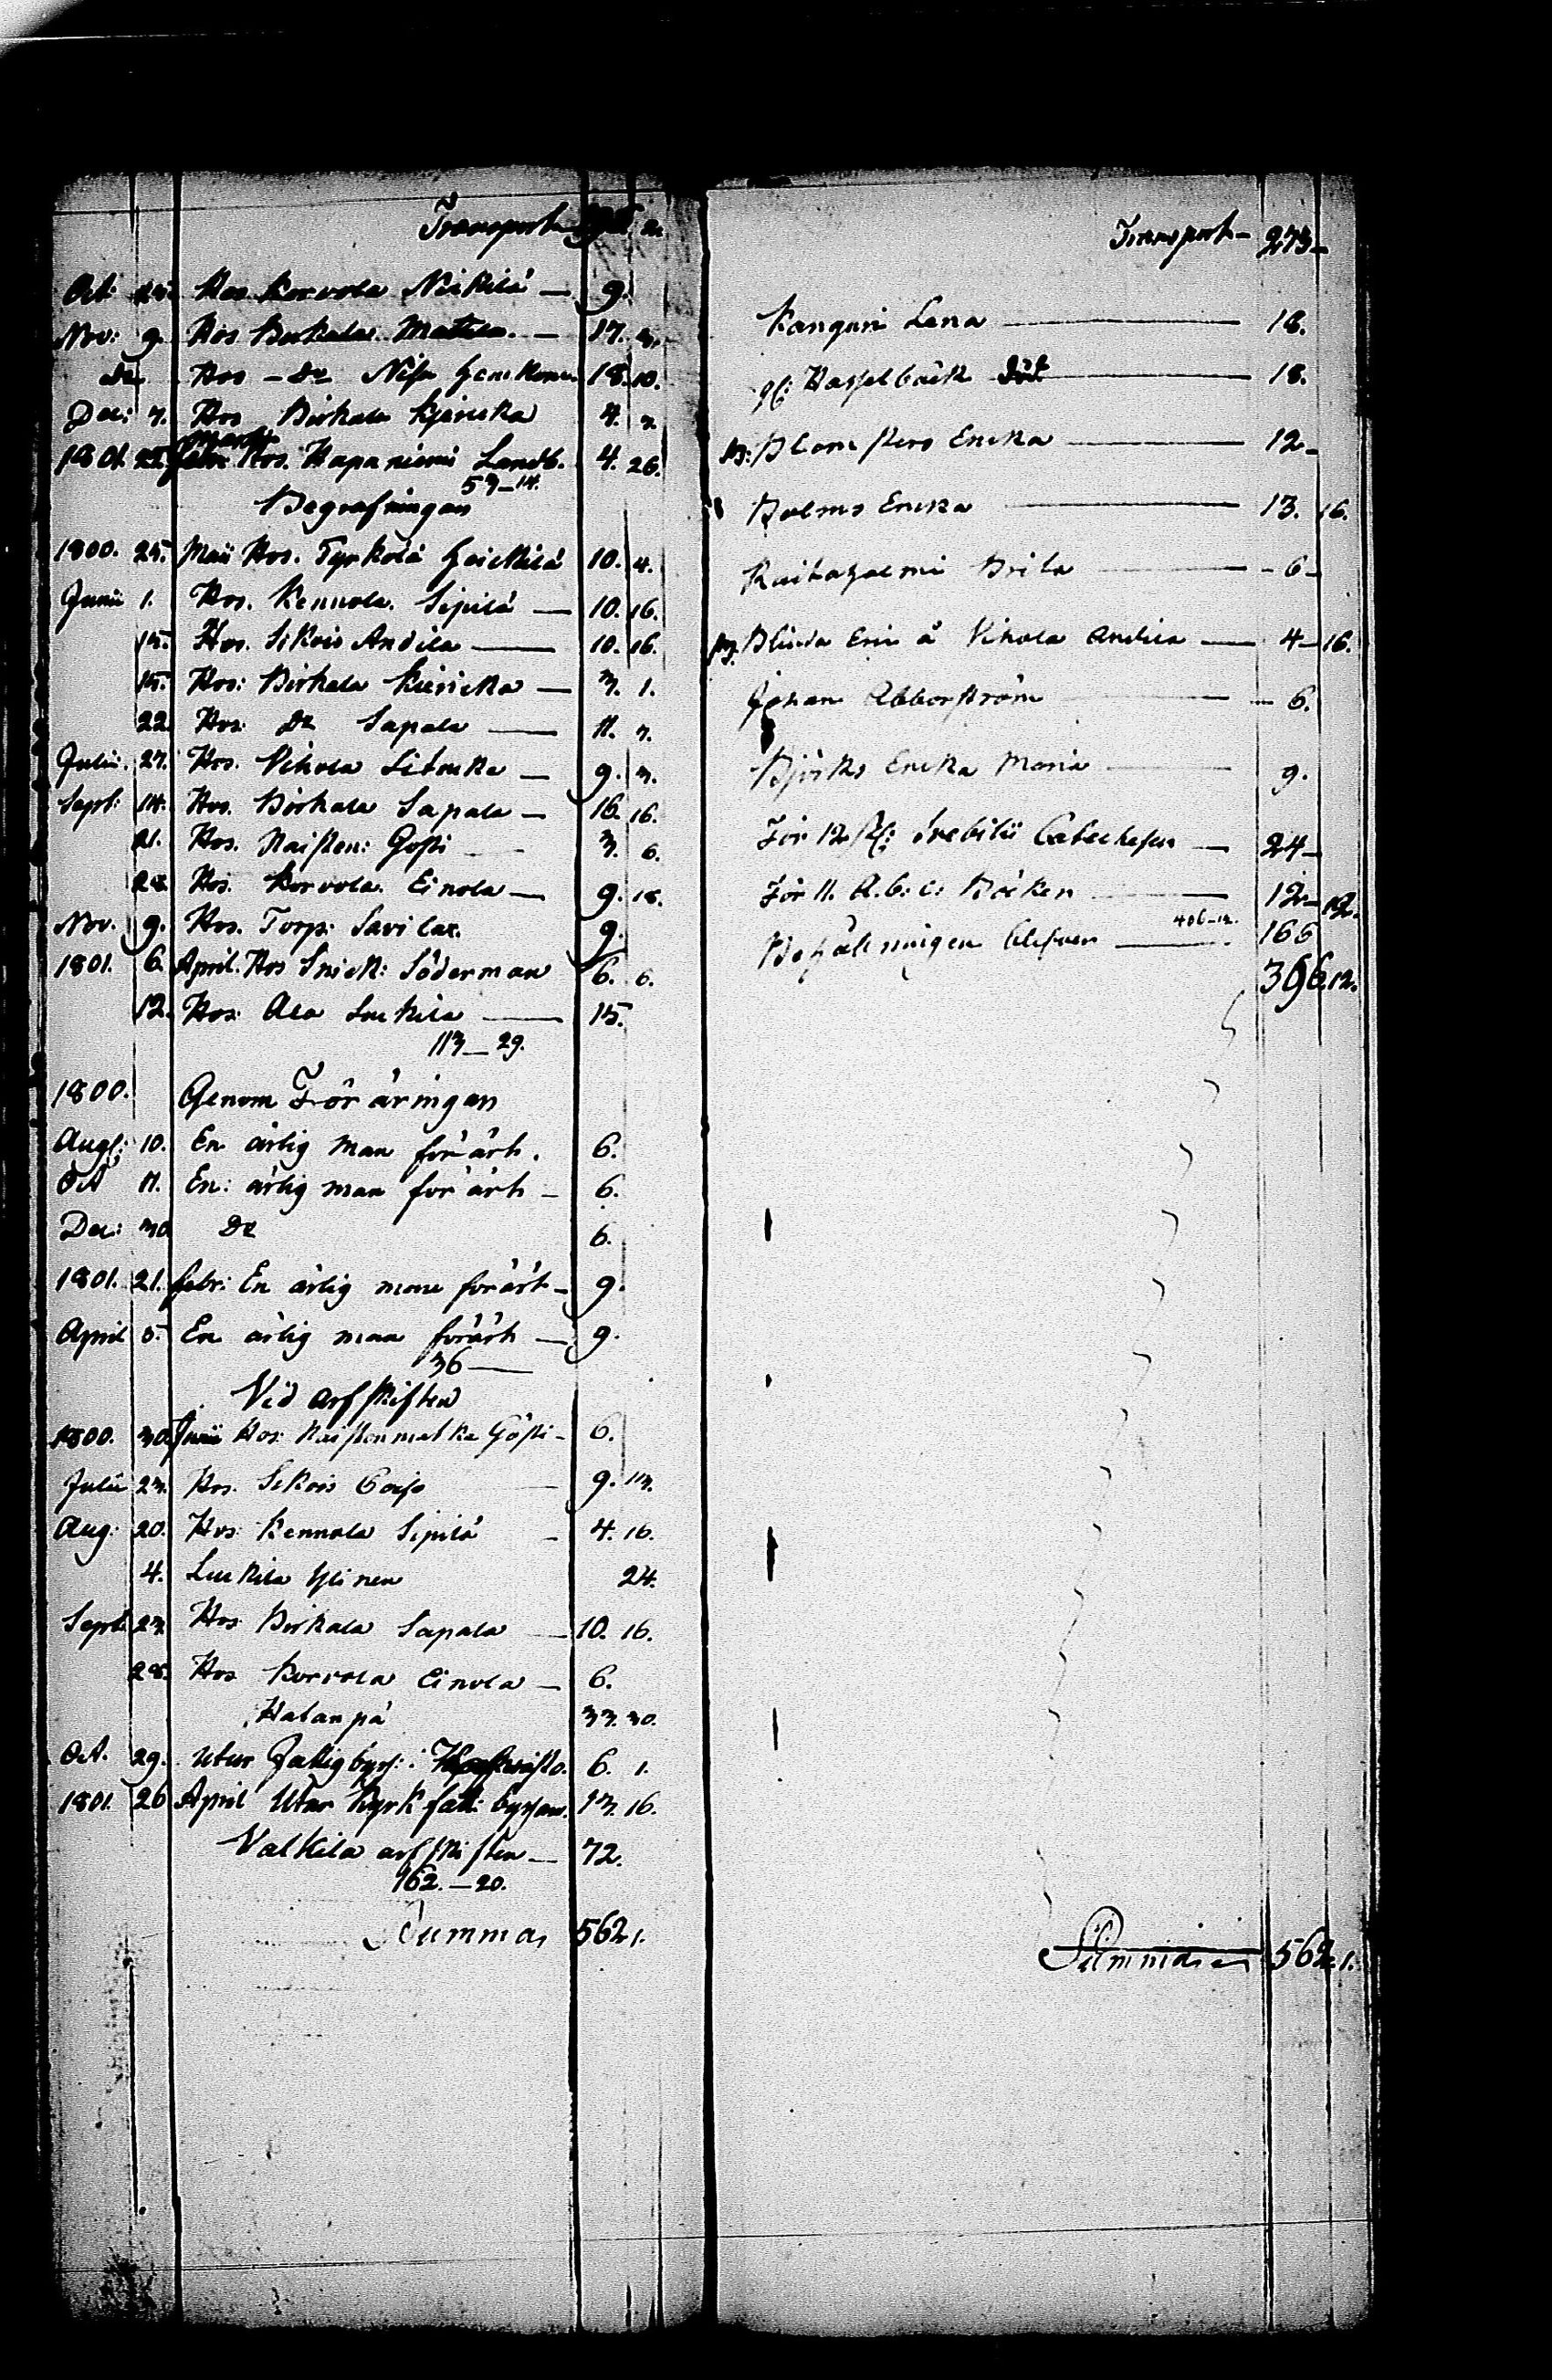 Transport 2.
Oct: 25. Hos Korvola Nickilä — 9.
Nov: 9. Hos Birkala Mattila — 17. 3.
Do Hos — Do Nisu — 18. 10.
Dec: 7. Hos Birkala Kjäricka 4. 7.
Martii
1801. 22. Hos. Hapaniemi Landb. 4. 26.
53—14.
Begrafningar
1800. 25. Maii Hos. Tyrkölä Heickilä 10. 4.
Junii 1. Hos. Kennola Sipilä — 10. 16.
15. Hos. Sikois Andila — 10. 16.
15. Hos: Birkala Kiericka — 3. 1.
22 Hos: Do Sapala — 11. 7.
Julii. 27. Hos. Vihola Sitoucka — 9. 3.
Sept: 14. Hos. Birkala Sapala — 16. 16.
21. Hos. Naisten: Gösti — 3. 6.
28. Hos. Korvola Einola — 9. 18.
Nov. 9. Hos. Torp: Savilax. 9.
1801. 6. April. Hos Snick: Söderman 6. 6.
12. Hos: Ala Luckila — 15.
113—29.
1800. Genom Föräringar
Aug: 10. En ärlig man förärt. 6.
Oct 11. En: ärlig man förärt — 6.
Dec: 30 Do 6.
1801. 21. febr: En ärlig man förärt — 9.
April 5. En ärlig man förärt — 9.
36 —
Vid arfskiften
1800. 30. Junii Hos: Naistenmatka Gösti — 6.
Julii 23. Hos. Sikois — 9. 13.
Aug: 20. Hos: Kennola Sipilä — 4. 16.
4. Luckila Ylinen 24.
Sept: 23. Hos Birkala Sapala — 10. 16.
28. Hos Korvola Einola — 6.
Hatanpä 33. 30.
Oct. 29. Utur Fattigbyss: 6. 1.
1801. 26 April Utur Kyrk fatt: byssan. 13. 16.
Valkila arfskiften — 72.
162.—20.
Summa, 562 1.
Transport — 273 —
Kanguri Lena — 18.
gl: Hasselbäck Död — 18.
Blomsters Ericka — 12 —
Bolms Ericka — 13. 16.
Raitahalmi Brita — 6 —
Blinda Eric å Vihola Andila — 4 — 16.
Johan Abborström — 6.
Björks Ericka Maria — 9.
För 12 st: Svebilii Catecheser — 24 —
För 11. A.b:c: Böcker — 12 — 12.
406—12.
Behållningen blifver — 166
396. 12.
562. 1.